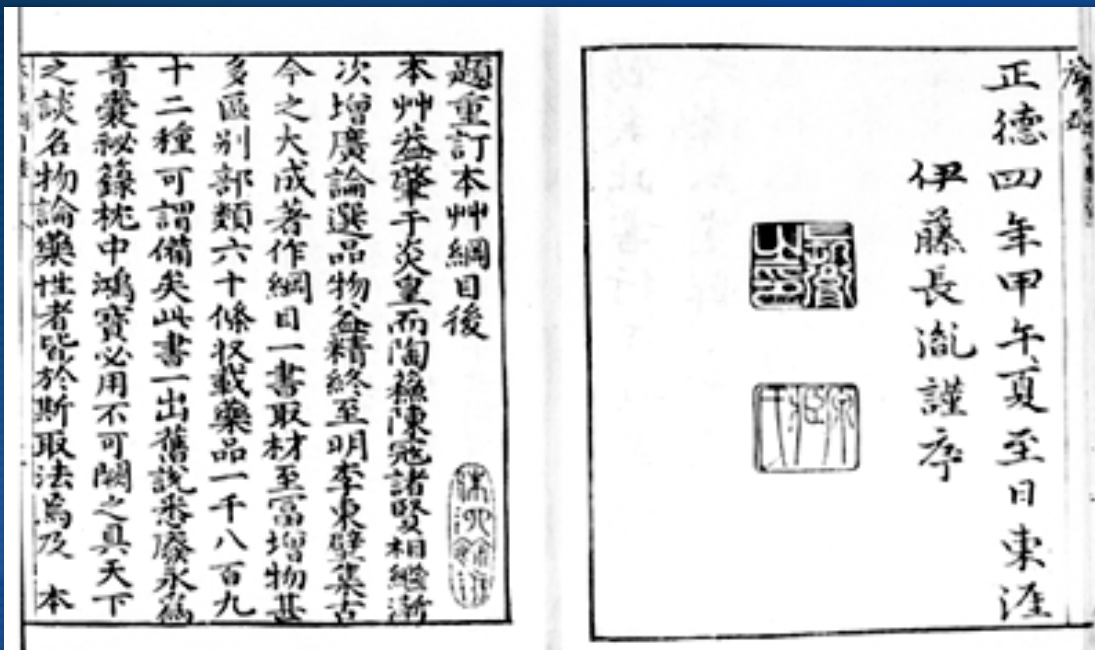 正德四年甲午夏至日東涯
伊藤長胤謹序
題重訂本艸綱目後
本艸蓋肇于炎皇而陶蘓陳寇諸賢相繼漸
次增廣論選品物益精終至明李東璧集古
今之大成著作綱目一書取材至富增物甚
多區别部類六十條收載藥品一千八百九
十二種可謂備矣此書一出舊說悉廢永爲
青囊祕籙枕中鴻寶必用不可闕之具天下
之談名物論藥性者皆於斯取法焉及 本